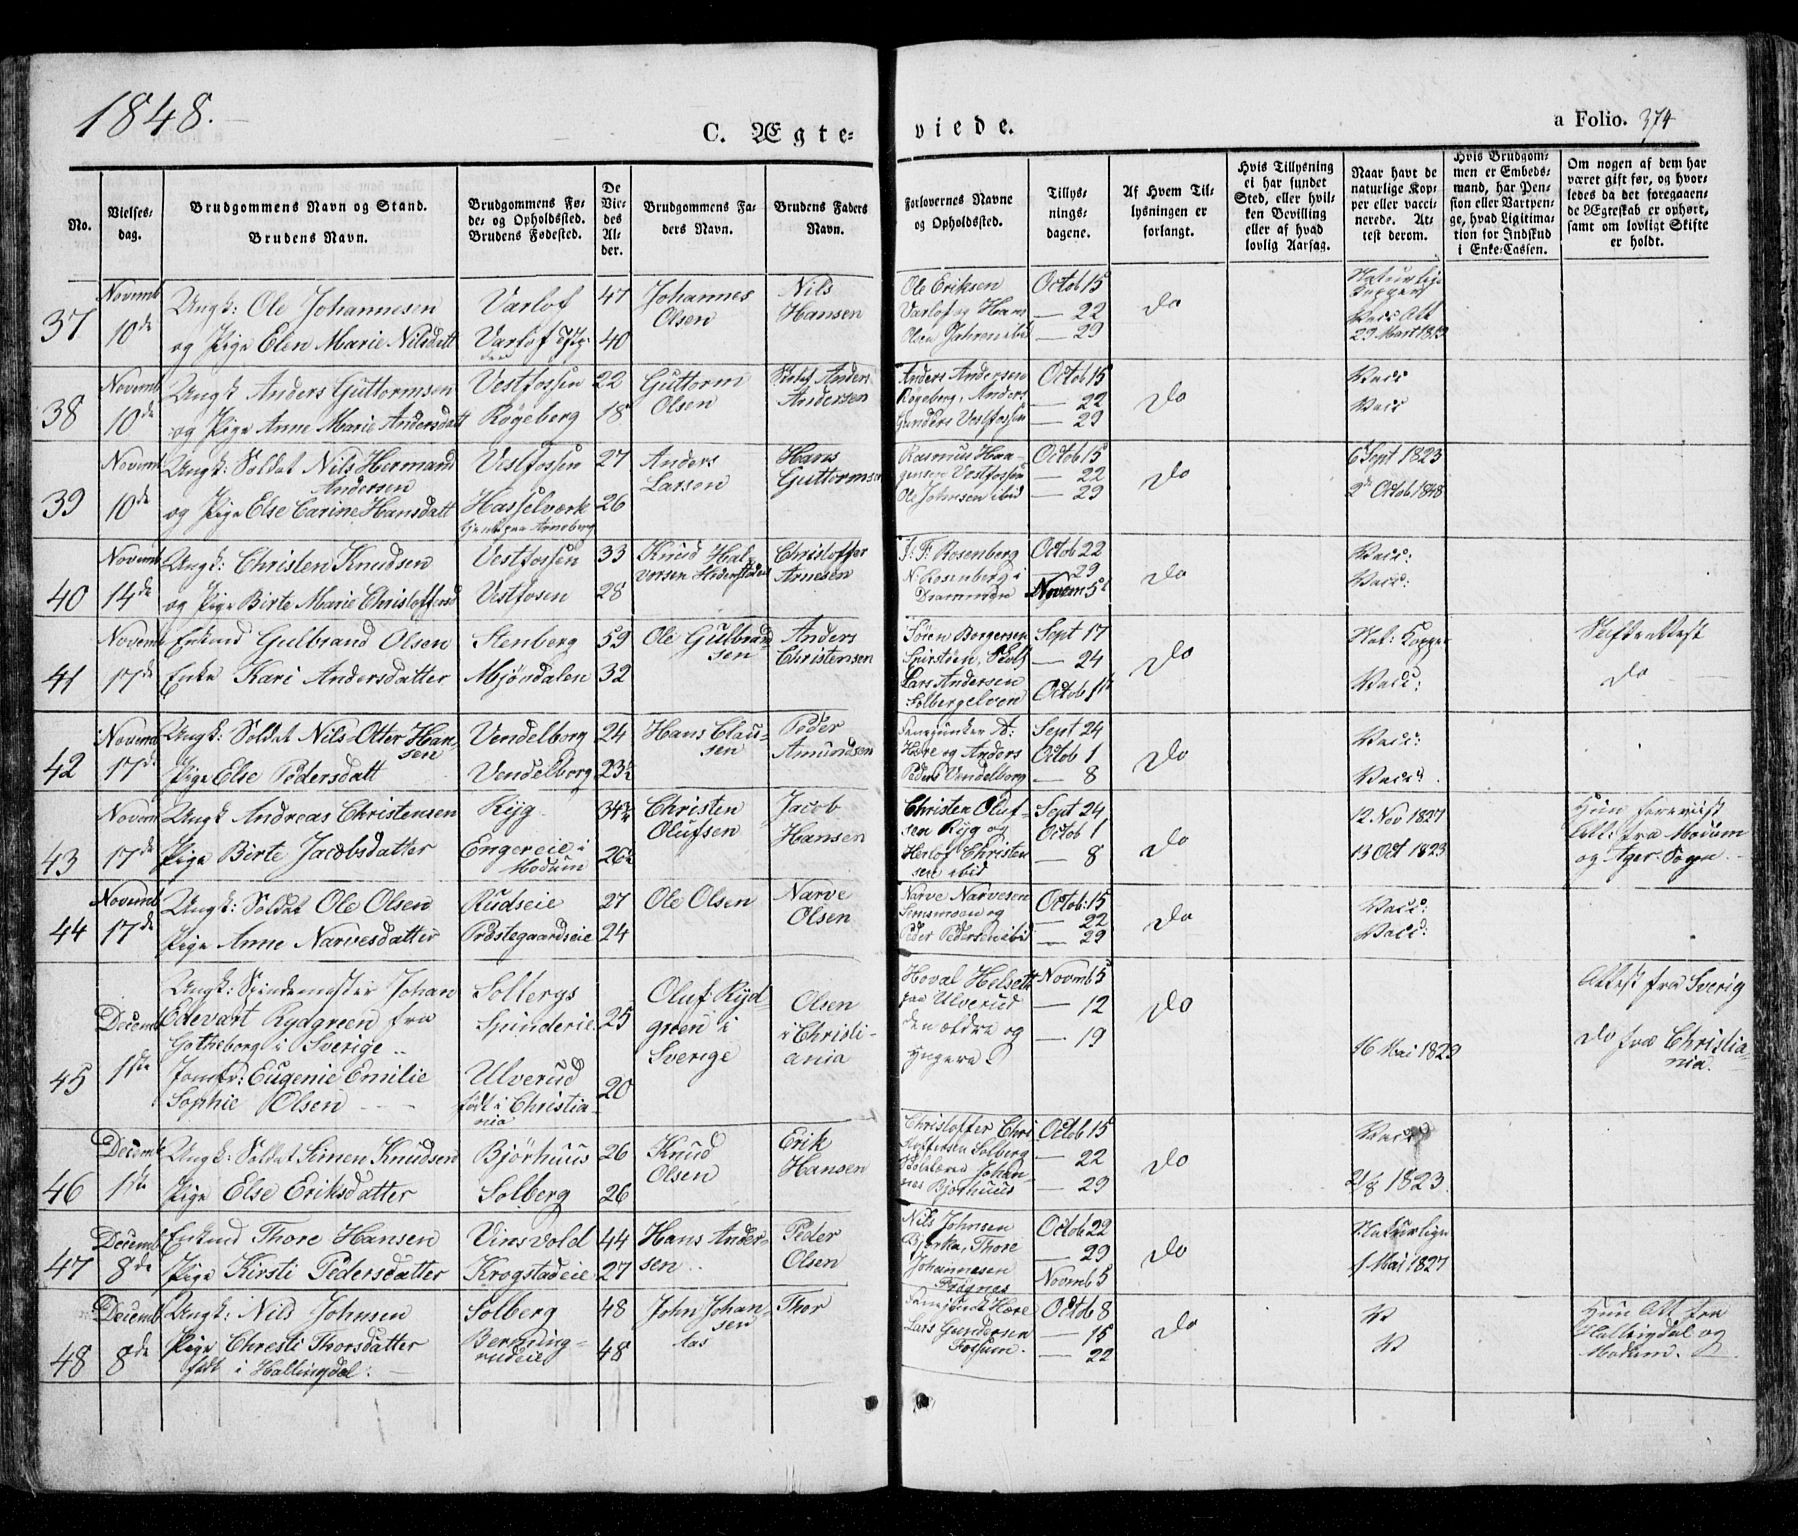 1848.
C. Ægte-
viede.
a Folio. 374
No.
Vielses-
dag.
Brudgommens Navn og Stand.
Brudens Navn.
Brudgommens Fø-
de- og Opholdssted.
Brudens Fødested.
De
Vie-
des
Al-
der.
Brudgommens Fa-
ders Navn.
Brudens Faders
Navn.
Forlovernes Navne
og Opholdssted.
Tillys-
nings-
dagene.
Af Hvem Til-
lysningen er
forlangt.
Hvis Tillysning
ei har fundet
Sted, eller hvil-
ken Bevilling
eller af hvad
lovlig Aarsag.
Naar havt de
naturlige Kop-
per eller vacci-
nerede. At-
test derom.
Hvis Brudgom-
men er Embeds-
mand, har Pen-
sion eller Vartpen-
ge, hvad Ligitima-
tion for Indskud
i Enke-Cassen.
Om nogen af dem har
været gift før, og hvor-
ledes da det foregaaen-
de Ægteskab er ophørt,
samt om lovligt Skifte
er holdt.
37
Novemb
10de
Ungk: Ole Johannesen
og Pige Elen Marie Nilsdatt
Varlof
Varlof
47
40
Johannes
Olsen
Nils
Hansen
Ole Eriksen
Varlof og Hans
Olsen ibid
Octob 15
— 22
— 29
Do
Naturlige
Kopper
Vacc Att
29 Mart 1819
38
Novemb
10de
Ungk Anders Guttormsen
og Pige Anne Marie Andersdatt
Vestfossen
Røgeberg
22
18
Guttorm
Olsen
Anders
Andersen
Anders Andersen
Røgeberg, Anders
Gunders Vestfossen
Octob 15
— 22
— 29
Do
Vacc
Vacc
39
Novemb
10de
Ungk: Soldat Nils Hermand
Andersen
og Pige Else Carine Hansdatt
Vestfossen
Hasselværk
tjent paa Arneberg
27
26
Anders
Larsen
Hans
Guttormsen
Rasmus Haa-
gensen Vestfossen
Ole Johnsen ibid
Octob 15
— 22
— 29
Do
6 Sept 1823
2d Octob 1848
40
Novemb
14de
Ungk: Christen Knudsen
og Pige Birte Marie Christoffersd
Vestfossen
Vestfosen
33
28
Knud Hal-
vorsen
Christoffer
Arnesen
J: F: Rosenberg
N. Rosenberg i
Drammen
Octob 22
— 29
Novem 5
Do
Vacc:
Vacc:
41
Novemb
17de
Enkmd Gulbrand Olsen
Enke Kari Andersdatter
Stenberg
Mjøndalen
59
32
Ole Gulbrand
sen
Anders
Christensen
Søren Borgersen
Lars Andersen
Solbergelven
Sept 17
— 24
Octob 1
Do
Nat: Kopper
Vacc:
Skifteattest
Do
42
Novemb
17de
Ungk: Soldat Nils Otter Han-
sen
Pige Else Pedersdatt
Vendelborg
Vendelborg
24
23½
Hans Clau-
sen
Peder
Amundsen
Høre og Anders
Peders Vendelborg
Sept 24
Octob 1
— 8
Do
Vacc:
Vacc:
43
Novemb
17de
Ungk Andreas Christensen
Pige Birte Jacobsdatter
Ryg
Engereie i
Modum
34½
26½
Christen
Olufsen
Jacob
Hansen
Christen Oluf-
sen Ryg og
Herlof Christen
sen ibid
Sept 24
Octob 1
— 8
Do
12 Nov 1827
13 Oct 1823
Hun foreviist
Att: fra Modum
og Ager Sogn.
44
Novemb
17de
Ungk: Soldat Ole Olsen
Pige Anne Narvesdatter
Rudseie
Præstegaardseie
27
24
Ole Olsen
Narve
Olsen
Narve Narvesen
Simsmoen og
Peder Pedersen ibid
Octob: 15
— 22
— 29
Do
Vacc:
Vacc:
45
Decemb
1ste
Ungk: Spindemester Johan
Edevart Rydgreen fra
Gotheborg i Sverige
Jomfr: Eugenie Emilie
Sophie Olsen
Solbergs
Spinderie
Ulverud
født i Christia-
nia
25
20
Oluf Ryd-
green i
Sverige
Olsen
i Christi-
ania
Hoval Helseth
paa Ulverud
den ældre og
yngere
Novmb 5
— 12
— 19
Do
16 Mai 1829
Attest fra Sverig
Do fra Christia-
nia.
46
Decemb
1ste
Ungk: Soldat Simen Knudsen
Pige Else Eriksdatter
Bjørhuus
Solberg
26
26
Knud
Olsen
Erik
Hansen
Christoffer Chri
stoffersen Solberg
Skolelærer Johan-
nes Bjørhuus
Octob 15
— 22
— 29
Do
Vacc
21/8 1823
47
Decemb
8de
Enkmd Thore Hansen
Pige Kirsti Pedersdatter
Vinsvold
Krogstadeie
44
27
Hans Ander-
sen
Peder
Olsen
Nils Johnsen
Bjerka, Thore
Johannesen
Octob 22
— 29
Novmb 5
Do
Naturlige
1 Mai 1827
48
Decemb
8de
Ungk: Nils Johnsen
Pige Chresti Thorsdatter
født i Hallingdal:
Solberg
48
48
John Johan-
sen
Thor
Høre
Lars Gundersen
Fossum
Octob 8
— 15
— 22
Do
V
V
Hun Att fra
Hallingdal og
Modum.